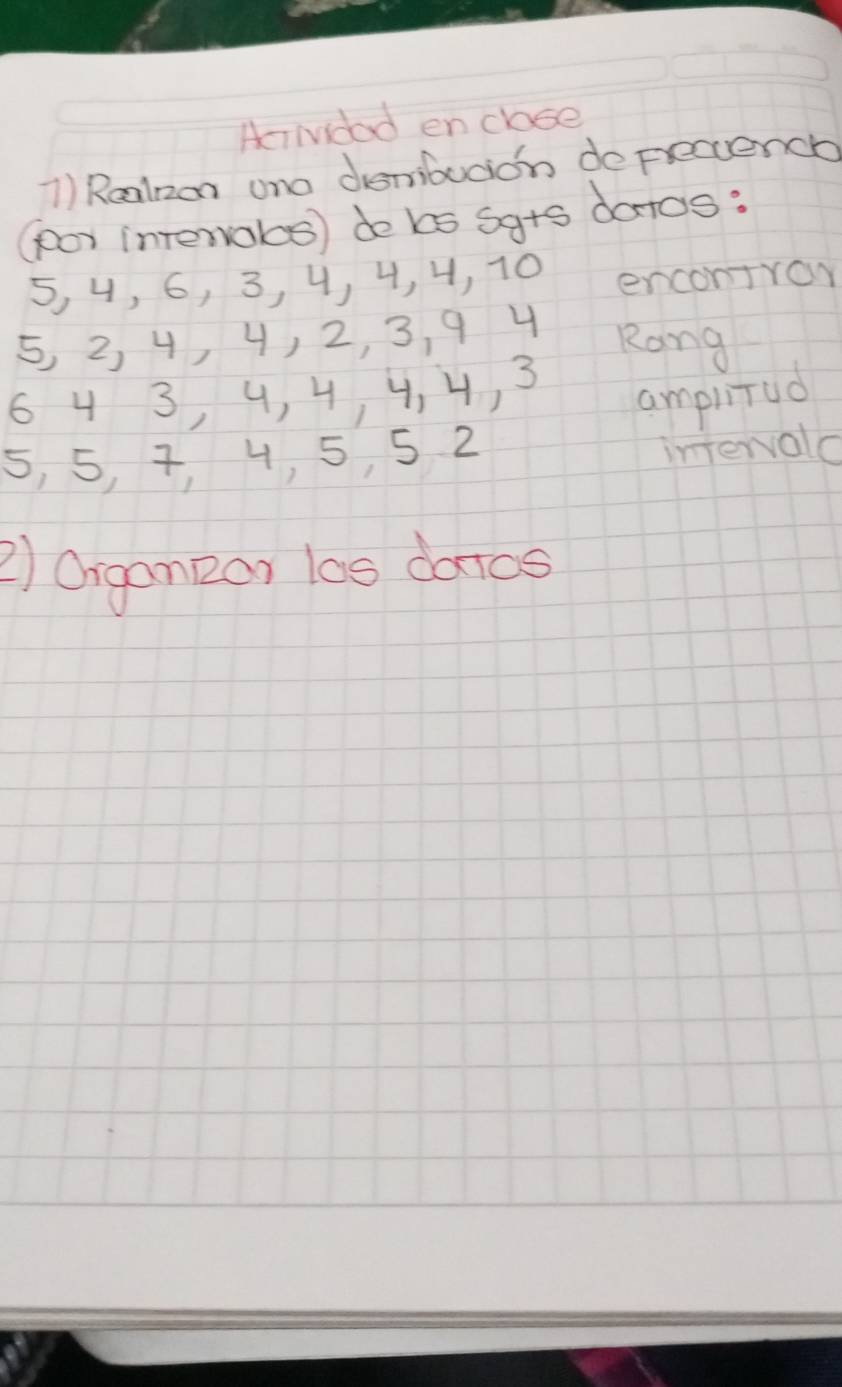 Actividad en clase
1) Realizar una distribución de Frecuencia
(por intervalos) de los sgts datos:
5, 4, 6, 3, 4, 4, 4, 10 encontrar
5, 2, 4, 4, 2, 3, 9 4 Rang
6 4 3, 4, 4, 4, 4, 3 amplitud
5, 5, 7, 4, 5, 5 2 intervalo
2) Organizar los datos